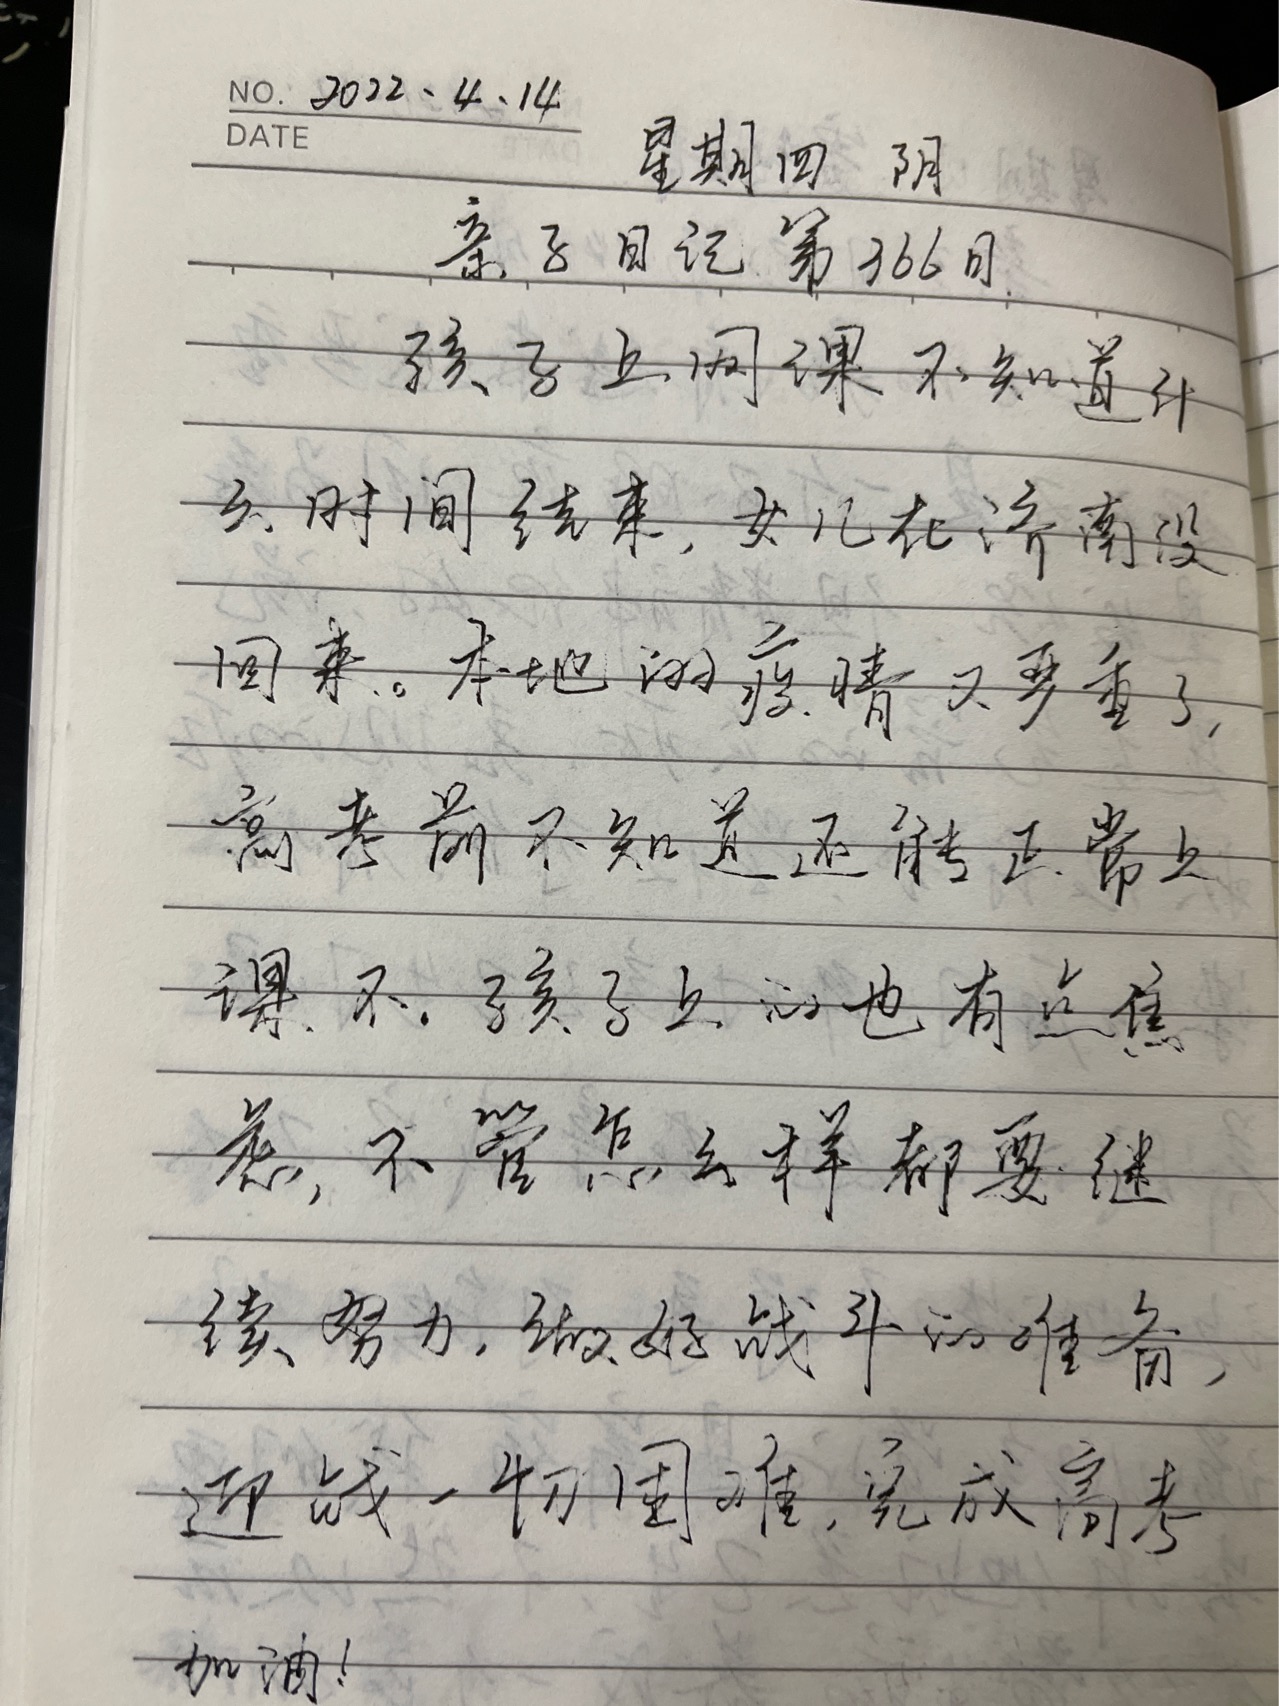 NO. 2022.4.14
DATE
星期四 阴
亲子日记第366日.
孩子上网课不知道什
么时间结束,女儿在济南没
回来。本地的疫情又严重了,
高考前不知道还能正常上
课不。孩子上的也有点焦
虑,不管怎么样都要继
续努力,做好战斗的准备,
迎战一切困难,完成高考
加油!